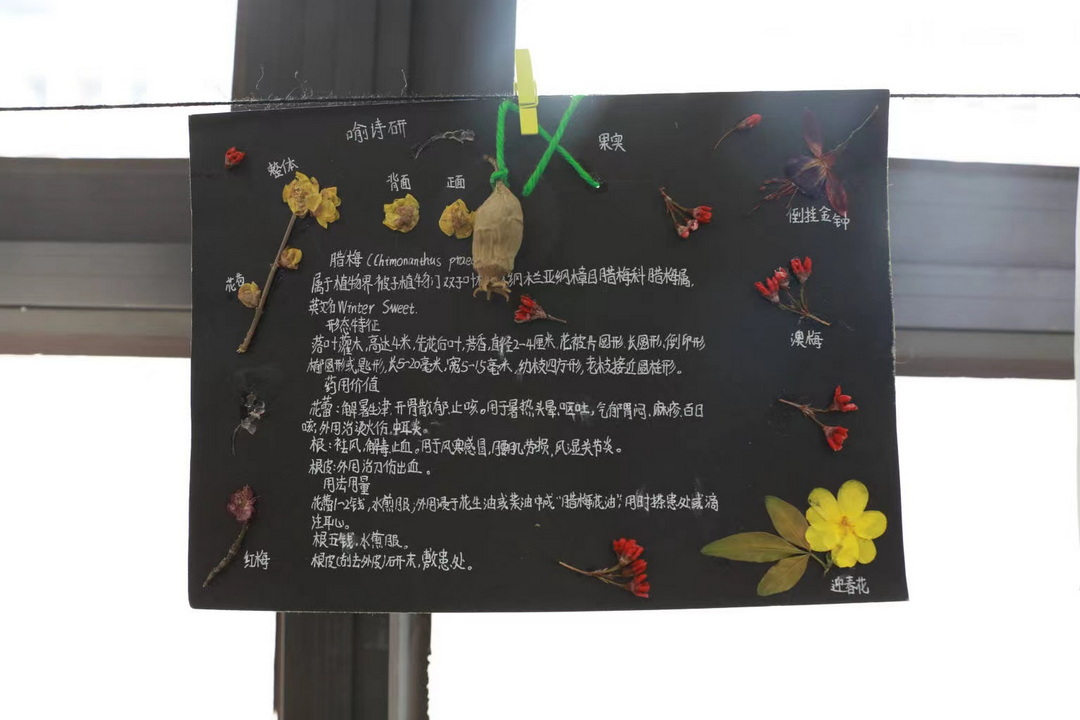 喻诗研
果实
整体
背面
正面
倒挂金钟
花蕾
腊梅 (Chimonanthus prae
属于植物界 被子植物门 双子叶 纲 木兰亚纲 樟目 腊梅科 腊梅属.
英文名 Winter Sweet.
形态特征
落叶灌木,高达4米.先花后叶,芳香,直径2-4厘米.花被片圆形 长圆形,倒卵形
椭圆形或匙形,长5-20毫米,宽5-15毫米,幼枝四方形,老枝接近圆柱形。
药用价值
花蕾:解暑生津,开胃散郁.止咳。用于暑热,头晕,呕吐,气郁胃闷,麻疹,百日
咳;外用治烫火伤,中耳炎。
根:祛风,解毒,止血。用于风寒感冒,腰肌劳损,风湿关节炎。
根皮:外用治刀伤出血。
用法用量
花蕾1-2钱,水煎服;外用浸于花生油或菜油中成"腊梅花油",用时搽患处或滴
注耳心。
根五钱,水煎服。
根皮(刮去外皮)研末,敷患处。
澳梅
红梅
迎春花